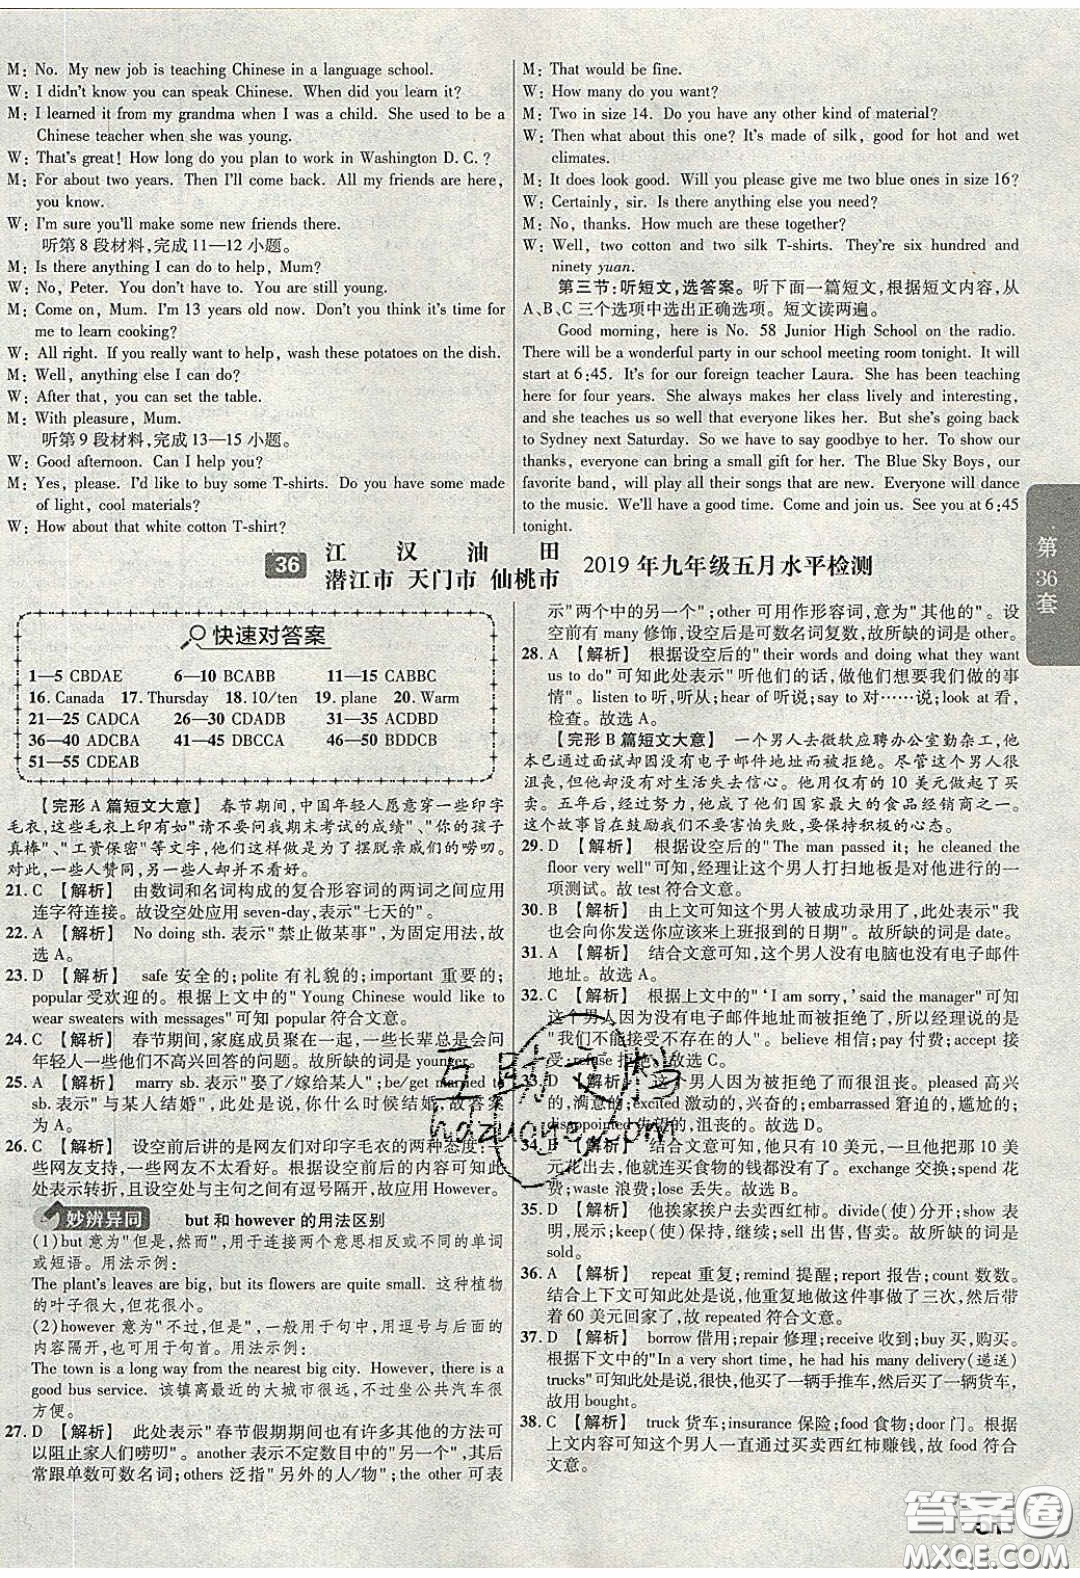 M: No. My new job is teaching Chinese in a language school.
W: I didn't know you can speak Chinese. When did you learn it?
M: I learned it from my grandma when I was a child. She used to be a
Chinese teacher when she was young.
W: That's great! How long do you plan to work in Washington D. C. ?
M: For about two years. Then I'll come back. All my friends are here,
you know.
W: I'm sure you'll make some new friends there.
听第 8 段材料,完成 11—12 小题。
M: Is there anything I can do to help, Mum?
W: No, Peter. You don't have to. You are still young.
M: Come on, Mum. I'm 13 years old now. Don't you think it's time for
me to learn cooking?
W: All right. If you really want to help, wash these potatoes on the dish.
M: Well, anything else I can do?
W: After that, you can set the table.
M: With pleasure, Mum.
听第 9 段材料,完成 13—15 小题。
W: Good afternoon. Can I help you?
M: Yes, please. I'd like to buy some T-shirts. Do you have some made
of light, cool materials?
W: How about that white cotton T-shirt?
M: That would be fine.
W: How many do you want?
M: Two in size 14. Do you have any other kind of material?
W: Then what about this one? It's made of silk, good for hot and wet
climates.
M: It does look good. Will you please give me two blue ones in size 16?
W: Certainly, sir. Is there anything else you need?
M: No, thanks. How much are these together?
W: Well, two cotton and two silk T-shirts. They're six hundred and
ninety yuan.
第三节:听短文,选答案。听下面一篇短文,根据短文内容,从
A、B、C 三个选项中选出正确选项。短文读两遍。
Good morning, here is No. 58 Junior High School on the radio.
There will be a wonderful party in our school meeting room tonight. It will
start at 6:45. It's for our foreign teacher Laura. She has been teaching
here for four years. She always makes her class lively and interesting,
and she teaches us so well that everyone likes her. But she's going back
to Sydney next Saturday. So we have to say goodbye to her. To show our
thanks, everyone can bring a small gift for her. The Blue Sky Boys, our
favorite band, will play all their songs that are new. Everyone will dance
to the music. We'll have a good time. Come and join us. See you at 6:45
tonight.
第36套
36 江汉油田
潜江市 天门市 仙桃市 2019 年九年级五月水平检测
快速对答案
1—5 CBDAE 6—10 BCABB 11—15 CABBC
16. Canada 17. Thursday 18. 10/ten 19. plane 20. Warm
21—25 CADCA 26—30 CDADB 31—35 ACDBD
36—40 ADCBA 41—45 DBCCA 46—50 BDDCB
51—55 CDEAB
【完形 A 篇短文大意】 春节期间,中国年轻人愿意穿一些印字
毛衣,这些毛衣上印有如"请不要问我期末考试的成绩"、"你的孩子
真棒"、"工资保密"等文字,他们这样做是为了摆脱亲戚们的唠叨。
对此,一些人赞同,另一些人却不看好。
21. C 【解析】 由数词和名词构成的复合形容词的两词之间应用
连字符连接。故设空处应用 seven-day,表示"七天的"。
22. A 【解析】 No doing sth. 表示"禁止做某事",为固定用法,故
选 A。
23. D 【解析】 safe 安全的;polite 有礼貌的;important 重要的;
popular受欢迎的。根据上文中的"Young Chinese would like to
wear sweaters with messages"可知 popular符合文意。
24. C 【解析】 春节期间,家庭成员聚在一起,一些长辈总是会问
年轻人一些他们不高兴回答的问题。故所缺的词是 younger。
25. A 【解析】 marry sb. 表示"娶了/嫁给某人";be/get married to
sb. 表示"与某人结婚",此处是说,你什么时候结婚。故答案
为 A。
26. C 【解析】 设空前后讲的是网友们对印字毛衣的两种态度:一
些网友支持,一些网友不太看好。根据设空前后的内容可知此
处表示转折,且设空处与主句之间有逗号隔开,故应用 However。
妙辨异同 but 和 however 的用法区别
(1)but 意为"但是,然而",用于连接两个意思相反或不同的单词
或短语。用法示例:
The plant's leaves are big, but its flowers are quite small. 这种植物
的叶子很大,但花很小。
(2)however 意为"不过,但是",一般用于句中,用逗号与后面的
内容隔开,也可用于句首。用法示例:
The town is a long way from the nearest big city. However, there is a
good bus service. 该镇离最近的大城市很远,不过坐公共汽车很
方便。
27. D 【解析】 此处表示"春节假期期间也有许多其他的方法可
以阻止家人们唠叨"。another 表示不定数目中的"另一个",其后
常跟单数可数名词;others 泛指"另外的人/物";the other 可表
示"两个中的另一个";other 可用作形容词,意为"其他的"。设
空前有 many 修饰,设空后是可数名词复数,故所缺的词是 other。
28. A 【解析】 根据设空后的"their words and doing what they want
us to do"可知此处表示"听他们的话,做他们想要我们做的事
情"。listen to 听,听从;hear of 听说;say to 对……说;look at 看,
检查。故选 A。
【完形 B 篇短文大意】 一个男人去微软应聘办公室勤杂工,他
本已通过面试却因为没有电子邮件地址而被拒绝。尽管这个男人很
沮丧,但他却没有对生活失去信心。他用仅有的 10 美元做起了买
卖。五年后,他成为了他们国家最大的食品经销商之一。
这个故事旨在鼓励我们不要害怕失败,要保持积极的心态。
29. D 【解析】 根据设空后的"The man passed it; he cleaned the
floor very well"可知,经理让这个男人打扫地板是对他进行的一
项测试。故 test 符合文意。
30. B 【解析】 由上文可知这个男人被成功录用了,此处表示"我
也会向你发送你应该来上班报到的日期"。故所缺的词是 date。
31. A 【解析】 结合文意可知,这个男人没有电脑也没有电子邮件
地址。故选 A。
32. C 【解析】 根据上文中的"'I am sorry,'said the manager"可知
这个男人因没有电子邮件地址而没有被录用,所以经理说的是
"我们不能接受不存在的人"。believe 相信;pay 付费;accept 接
受;refuse 拒绝。故选 C。
33. D 【解析】 这个男人因为被拒绝了而很沮丧。pleased 高兴
的,满意的;excited 激动的,兴奋的;embarrassed 窘迫的,尴尬的;
disappointed 失望的,沮丧的。故选 D。
34. B 【解析】 结合文意可知,他只有 10 美元,一旦他把那 10 美
元花出去,他就连买食物的钱都没有了。exchange 交换;spend 花
费;waste 浪费;lose 丢失。故选 B。
35. D 【解析】 他挨家挨户去卖西红柿。divide(使)分开;show 表
明,展示;keep(使)保持,继续;sell 出售,售卖。故所缺的词是
sold。
36. A 【解析】 repeat 重复;remind 提醒;report 报告;count 数数。
结合上下文可知此处是说,他重复地做这件事做了三次,然后带
着 60 美元回家了,故 repeated 符合文意。
37. D 【解析】 borrow 借用;repair 修理;receive 收到;buy 买,购买。
根据下文中的"In a very short time, he had his many delivery(递送)
trucks"可知此处是说,很快,他买了一辆手推车,然后买了一辆货车,
故用 bought。
38. C 【解析】 truck 货车;insurance 保险;food 食物;door 门。根据
上文内容可知这个男人一直通过买卖西红柿赚钱,故 food 符合
文意。
互助文档
hdzuoye.com
答案圈
MXQE.COM